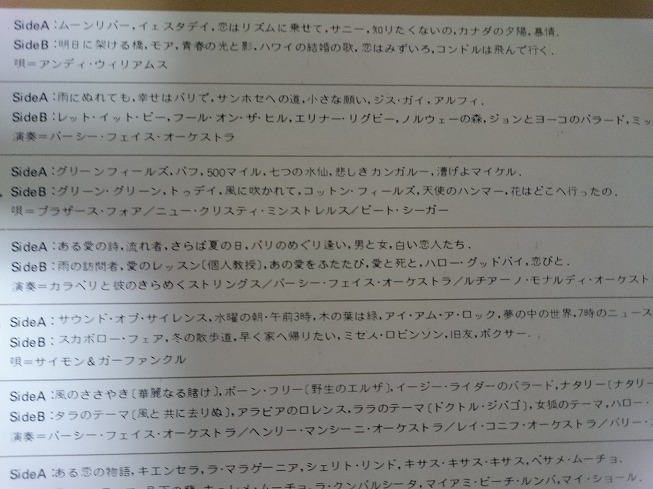 SideA：ムーンリバー，イェスタデイ，恋はリズムに乗せて，サニー，知りたくないの，カナダの夕陽，慕情．
SideB：明日に架ける橋，モア，青春の光と影，ハワイの結婚の歌，恋はみずいろ，コンドルは飛んで行く．
唄＝アンディ・ウィリアムス
SideA：雨にぬれても，幸せはパリで，サンホセへの道，小さな願い，ジス・ガイ，アルフィ．
SideB：レット・イット・ビー，フール・オン・ザ・ヒル，エリナー・リグビー，ノルウェーの森，ジョンとヨーコのバラード，ミッ
演奏＝パーシー・フェイス・オーケストラ
SideA：グリーンフィールズ，パフ，500マイル，七つの水仙，悲しきカンガルー，漕げよマイケル．
SideB：グリーン・グリーン，トゥデイ，風に吹かれて，コットン・フィールズ，天使のハンマー，花はどこへ行ったの．
唄＝ブラザース・フォア／ニュー・クリスティ・ミンストレルス／ピート・シーガー
SideA：ある愛の詩，流れ者，さらば夏の日，パリのめぐり逢い，男と女，白い恋人たち．
SideB：雨の訪問者，愛のレッスン〔個人教授〕，あの愛をふたたび，愛と死と，ハロー・グッドバイ，恋びと．
演奏＝カラベリと彼のきらめくストリングス／パーシー・フェイス・オーケストラ／ルチアーノ・モナルディ・オーケスト
SideA：サウンド・オブ・サイレンス，水曜の朝・午前3時，木の葉は緑，アイ・アム・ア・ロック，夢の中の世界，7時のニュース
SideB：スカボロー・フェア，冬の散歩道，早く家へ帰りたい，ミセス・ロビンソン，旧友，ボクサー．
唄＝サイモン＆ガーファンクル
SideA：風のささやき〔華麗なる賭け〕，ボーン・フリー〔野生のエルザ〕，イージー・ライダーのバラード，ナタリー〔ナタリー
SideB：タラのテーマ〔風と共に去りぬ〕，アラビアのロレンス，ララのテーマ〔ドクトル・ジバゴ〕，女狐のテーマ，ハロー・
演奏＝パーシー・フェイス・オーケストラ／ヘンリー・マンシーニ・オーケストラ／レイ・コニフ・オーケストラ／バリー・
SideA：ある恋の物語，キエンセラ，ラ・マラゲーニア，シェリト・リンド，キサス・キサス・キサス，ベサメ・ムーチョ．
ムーチョ，ラ・クンパルシータ，マイアミ・ビーチ・ルンバ，マイ・ショール．